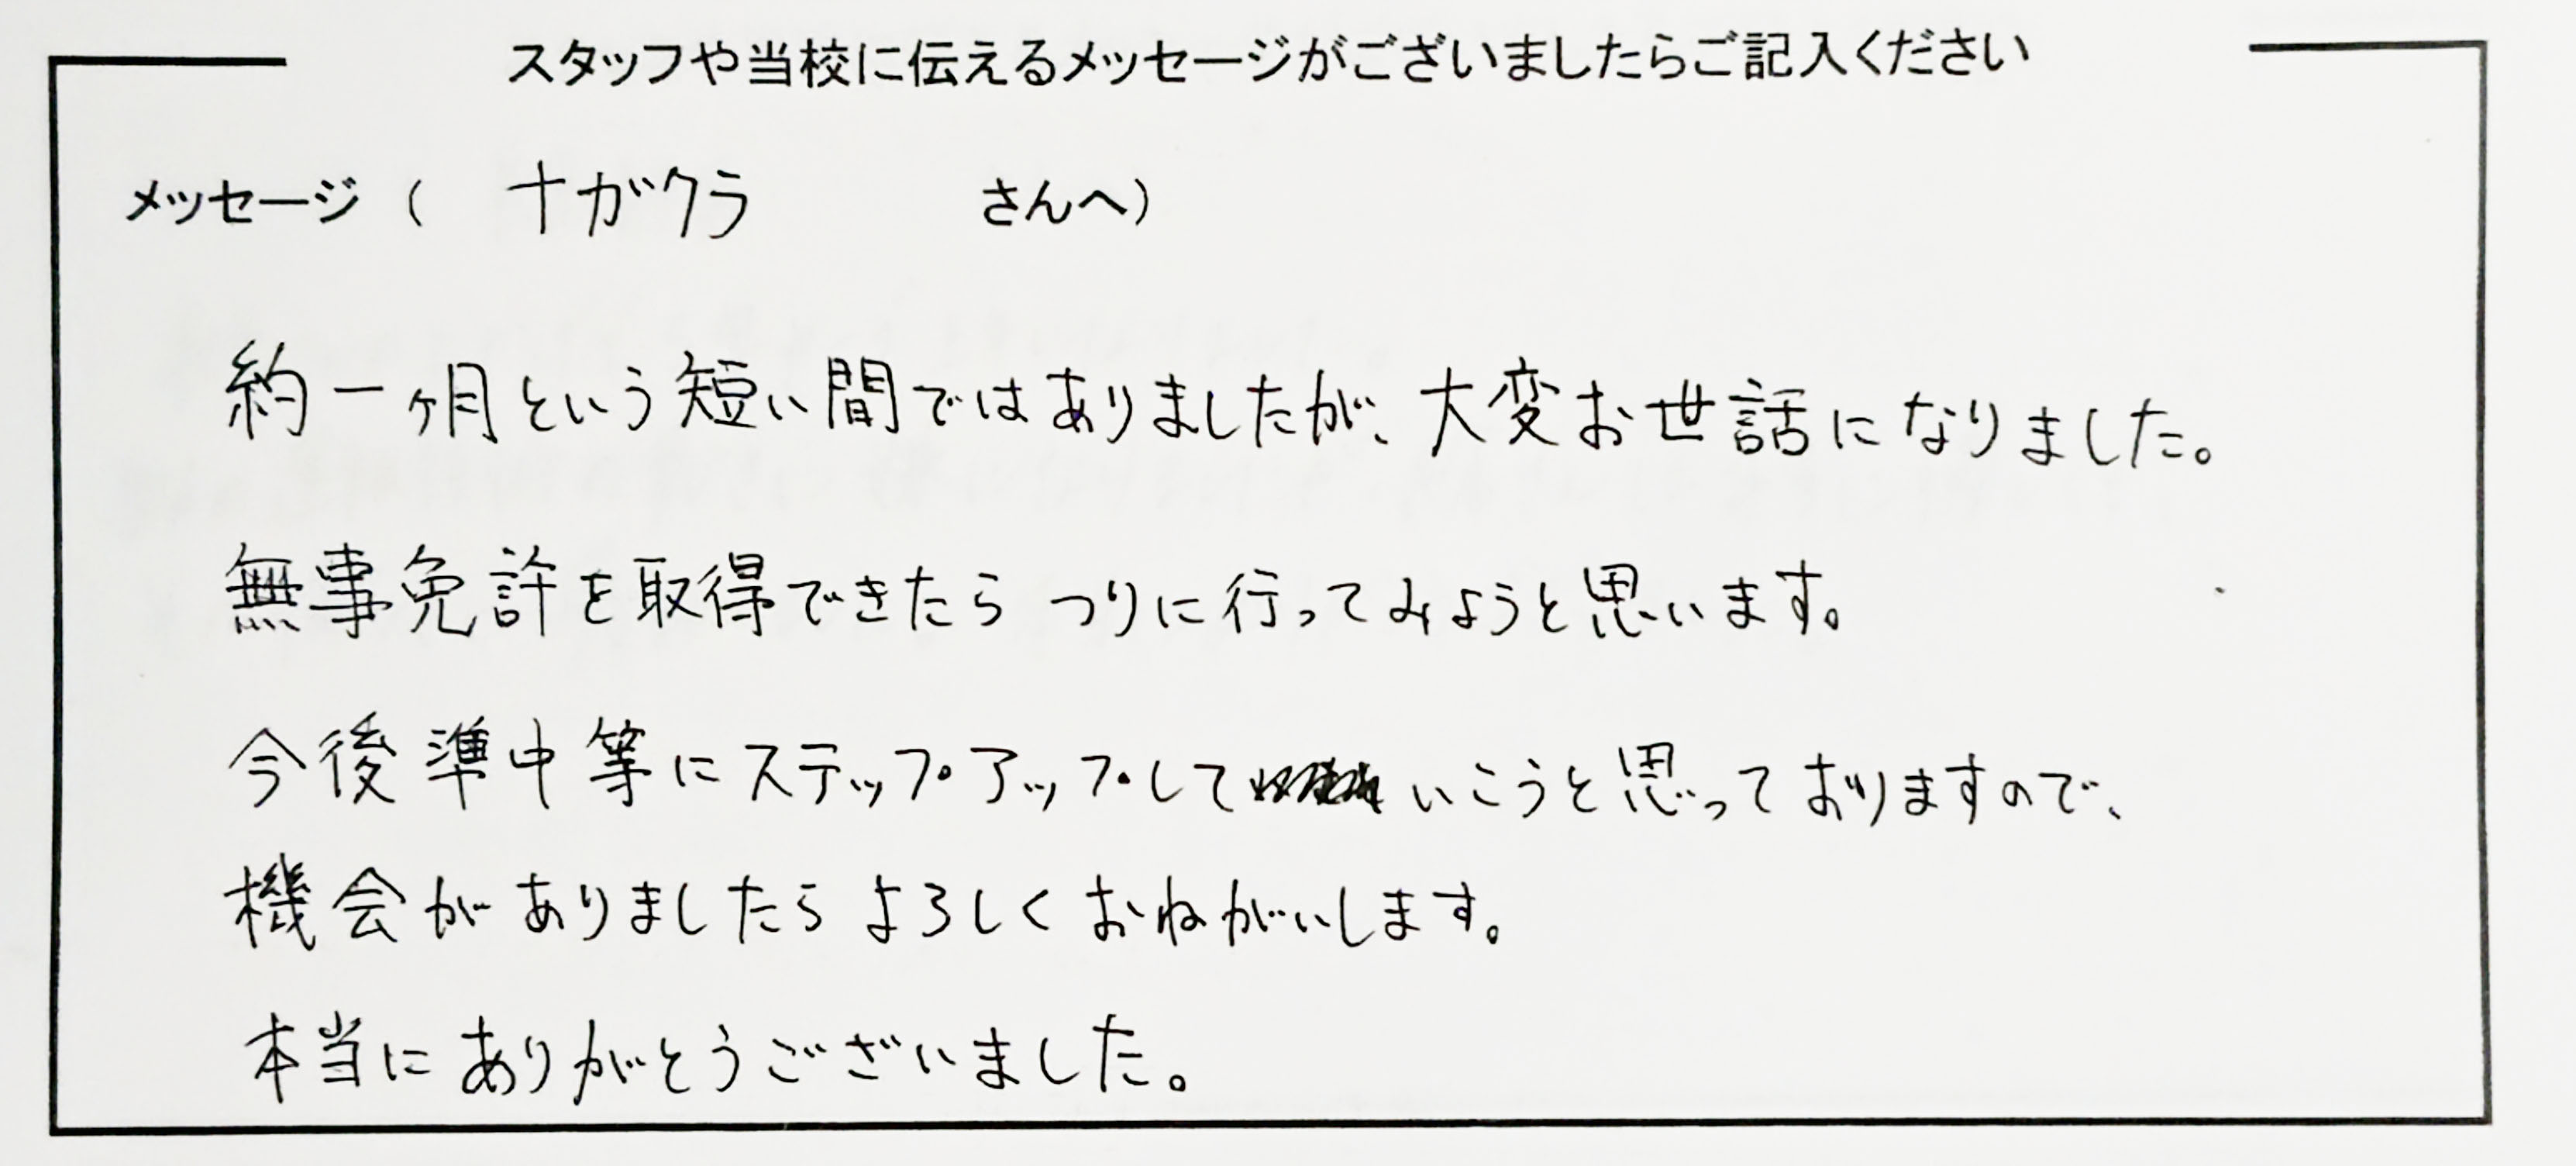 スタッフや当校に伝えるメッセージがございましたらご記入ください
メッセージ（ ナガクラ さんへ）
約一ヶ月という短い間ではありましたが、大変お世話になりました。
無事免許を取得できたら つりに行ってみようと思います。
今後準中等にステップアップして いこうと思っておりますので、
機会がありましたらよろしくおねがいします。
本当にありがとうございました。